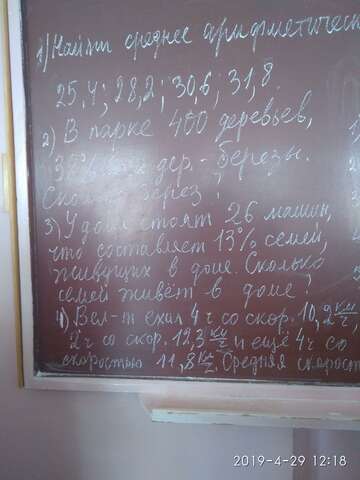 1) Найти среднее арифметическ
25,4; 28,2; 30,6; 31,8.
2) В парке 400 деревьев,
дер. - березы.
берез?
3) У дома стоят 26 машин,
что составляет 13% семей,
живущих в доме. Сколько
семей живёт в доме?
4) Вел-т ехал 4 ч со скор. 10,2 км/ч
2 ч со скор. 12,3 км/ч и ещё 4 ч со
скоростью 11,8 км/ч. Средняя скорост
2019-4-29 12:18